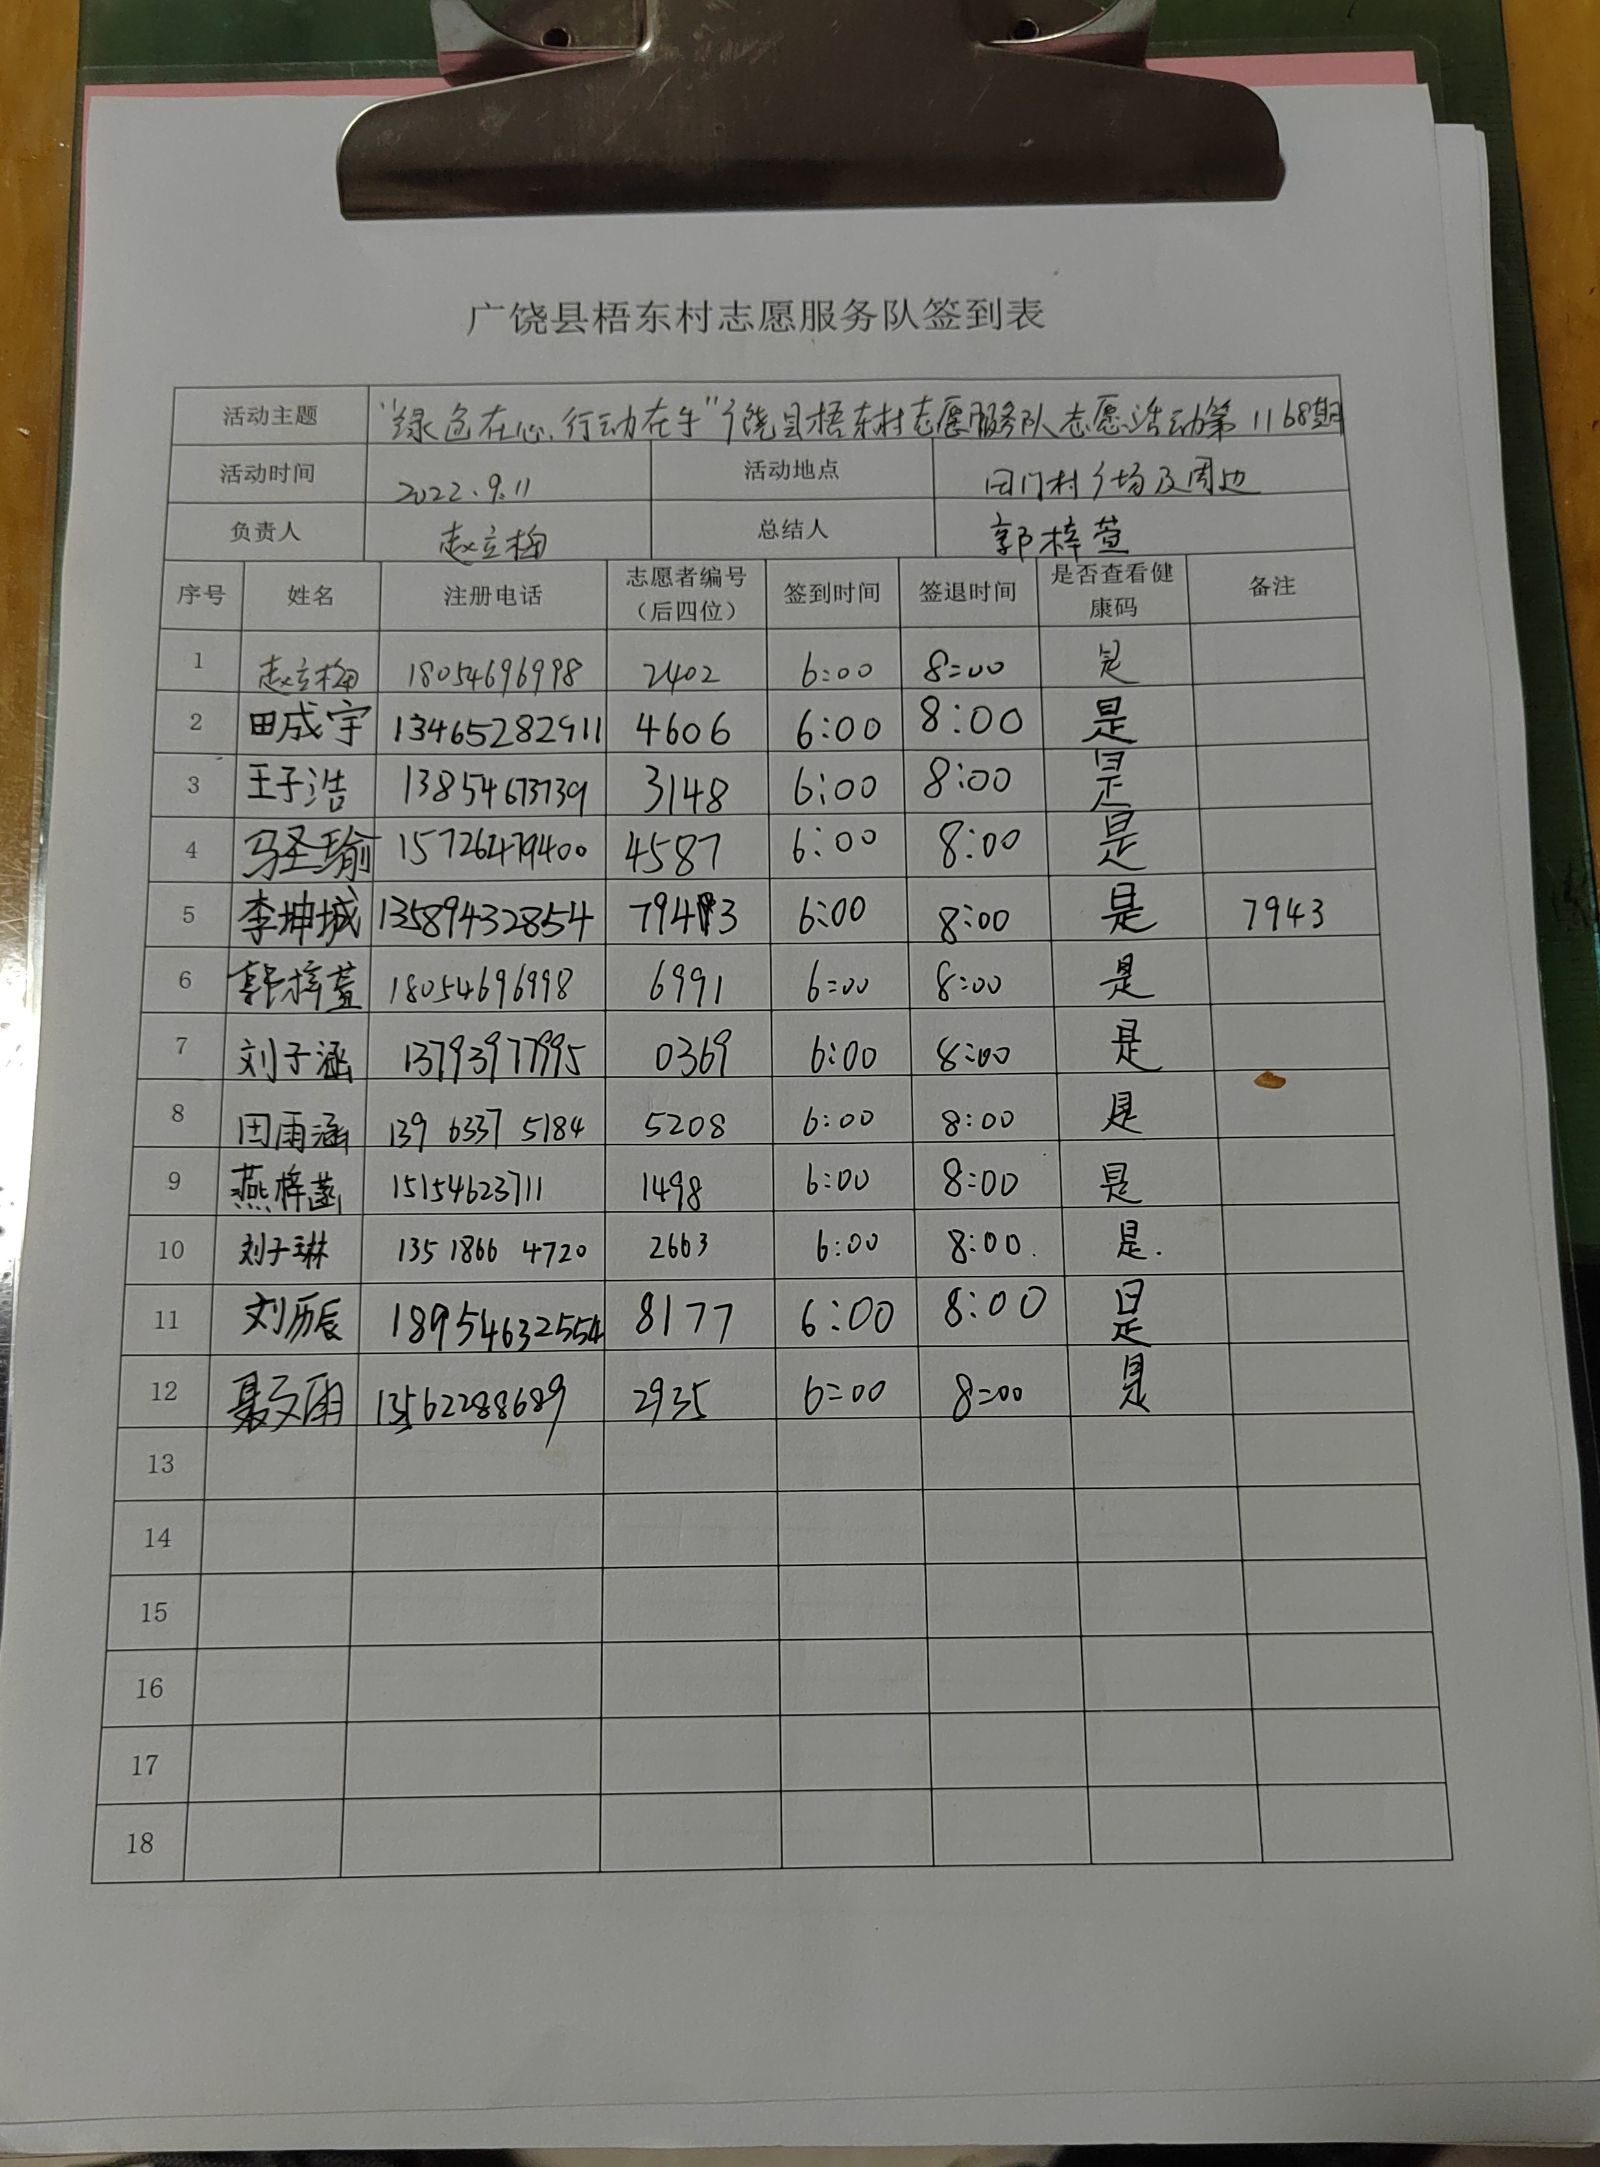 广饶县梧东村志愿服务队签到表
活动主题 "绿色在心，行动在手"广饶县梧东村志愿服务队志愿活动第1168期
活动时间 2022.9.11 活动地点 田门村广场及周边
负责人 赵立梅 总结人 郭梓萱
序号 姓名 注册电话 志愿者编号（后四位） 签到时间 签退时间 是否查看健康码 备注
1 赵立梅 18054696998 2402 6:00 8:00 是
2 田成宇 13465282911 4606 6:00 8:00 是
3 王子浩 13854673739 3148 6:00 8:00 是
4 马圣瑜 15726479400 4587 6:00 8:00 是
5 李坤城 13589432854 6:00 8:00 是 7943
6 郭梓萱 18054696998 6991 6:00 8:00 是
7 刘子涵 13793977995 0369 6:00 8:00 是
8 田雨涵 139 6337 5184 5208 6:00 8:00 是
9 燕梓菡 15154623711 1498 6:00 8:00 是
10 刘子琳 135 1866 4720 2663 6:00 8:00. 是.
11 刘历辰 18954632554 8177 6:00 8:00 是
12 聂文雨 13562288689 2935 6:00 8:00 是
13
14
15
16
17
18